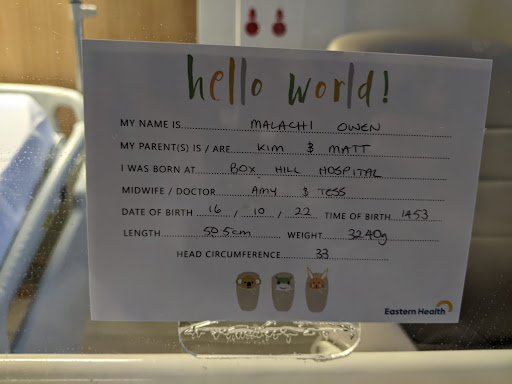 hello world!
MY NAME IS MALACHI OWEN
MY PARENT(S) IS / ARE KIM $ MATT
I WAS BORN AT BOX HILL HOSPITAL
MIDWIFE / DOCTOR AMY $ TESS
DATE OF BIRTH 16 / 10 / 22 TIME OF BIRTH 1453
LENGTH 50.5cm WEIGHT 3240g
HEAD CIRCUMFERENCE 33
Eastern Health